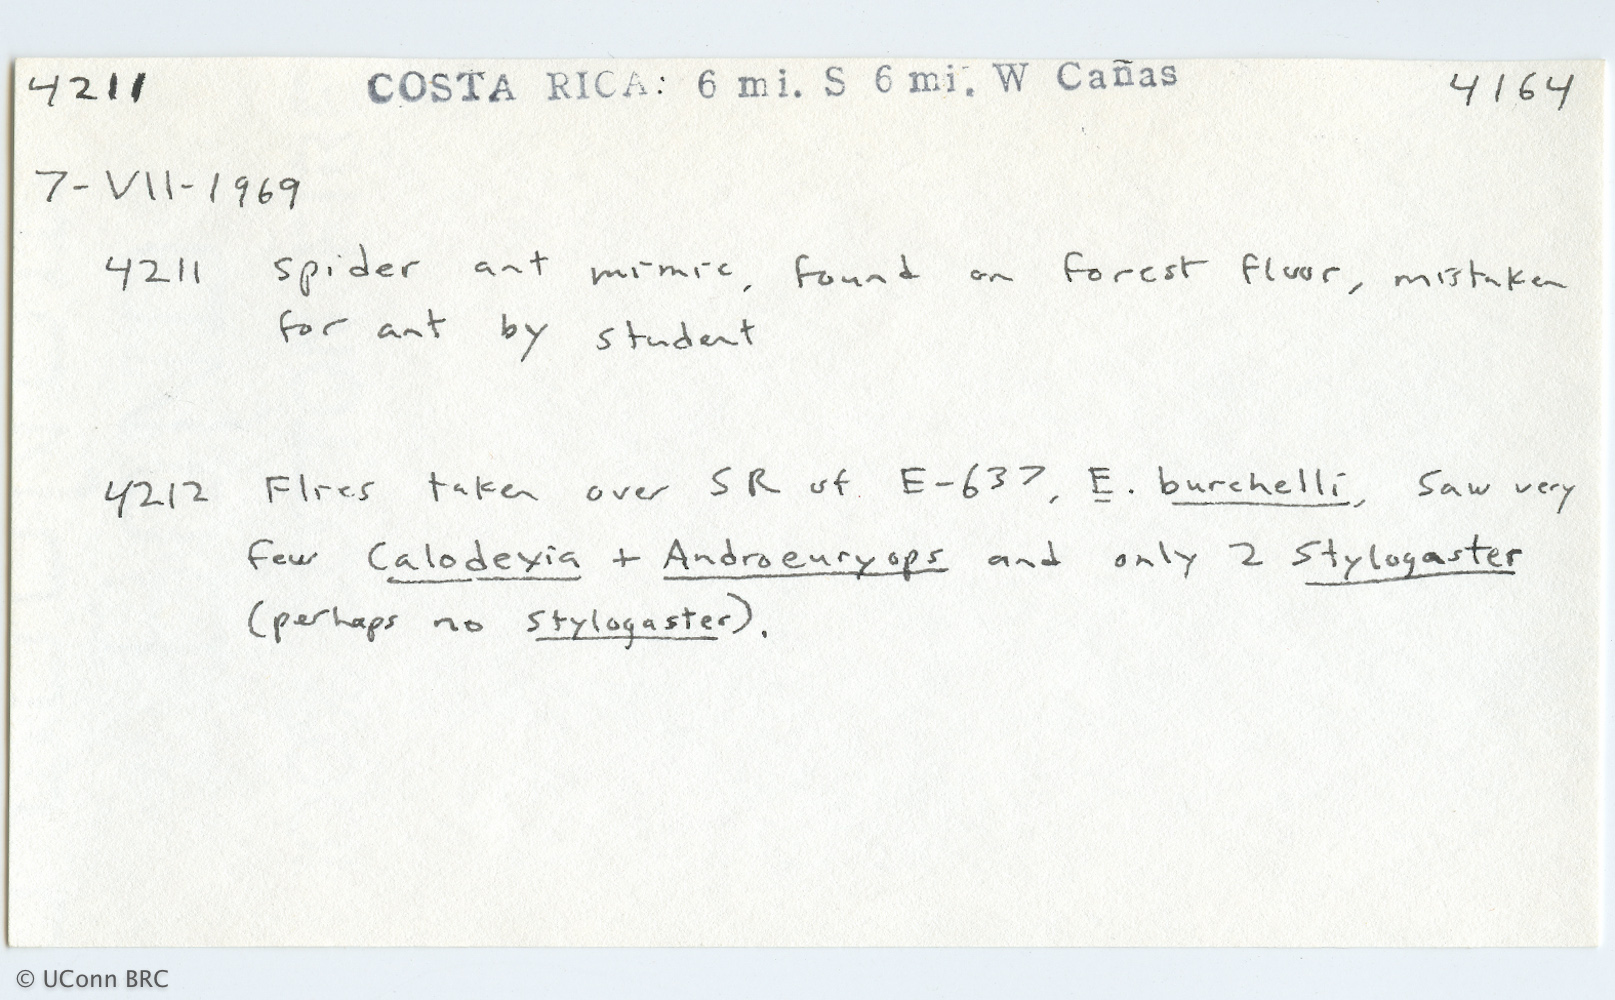 4211 COSTA RICA: 6 mi. S 6 mi. W Cañas 4164
7-VII-1969
4211 spider ant mimic, found on forest floor, mistaken
for ant by student
4212 Flies taken over SR of E-637, E. burchelli, Saw very
few Calodexia + Androeuryops and only 2 Stylogaster
(perhaps no Stylogaster).
© UConn BRC